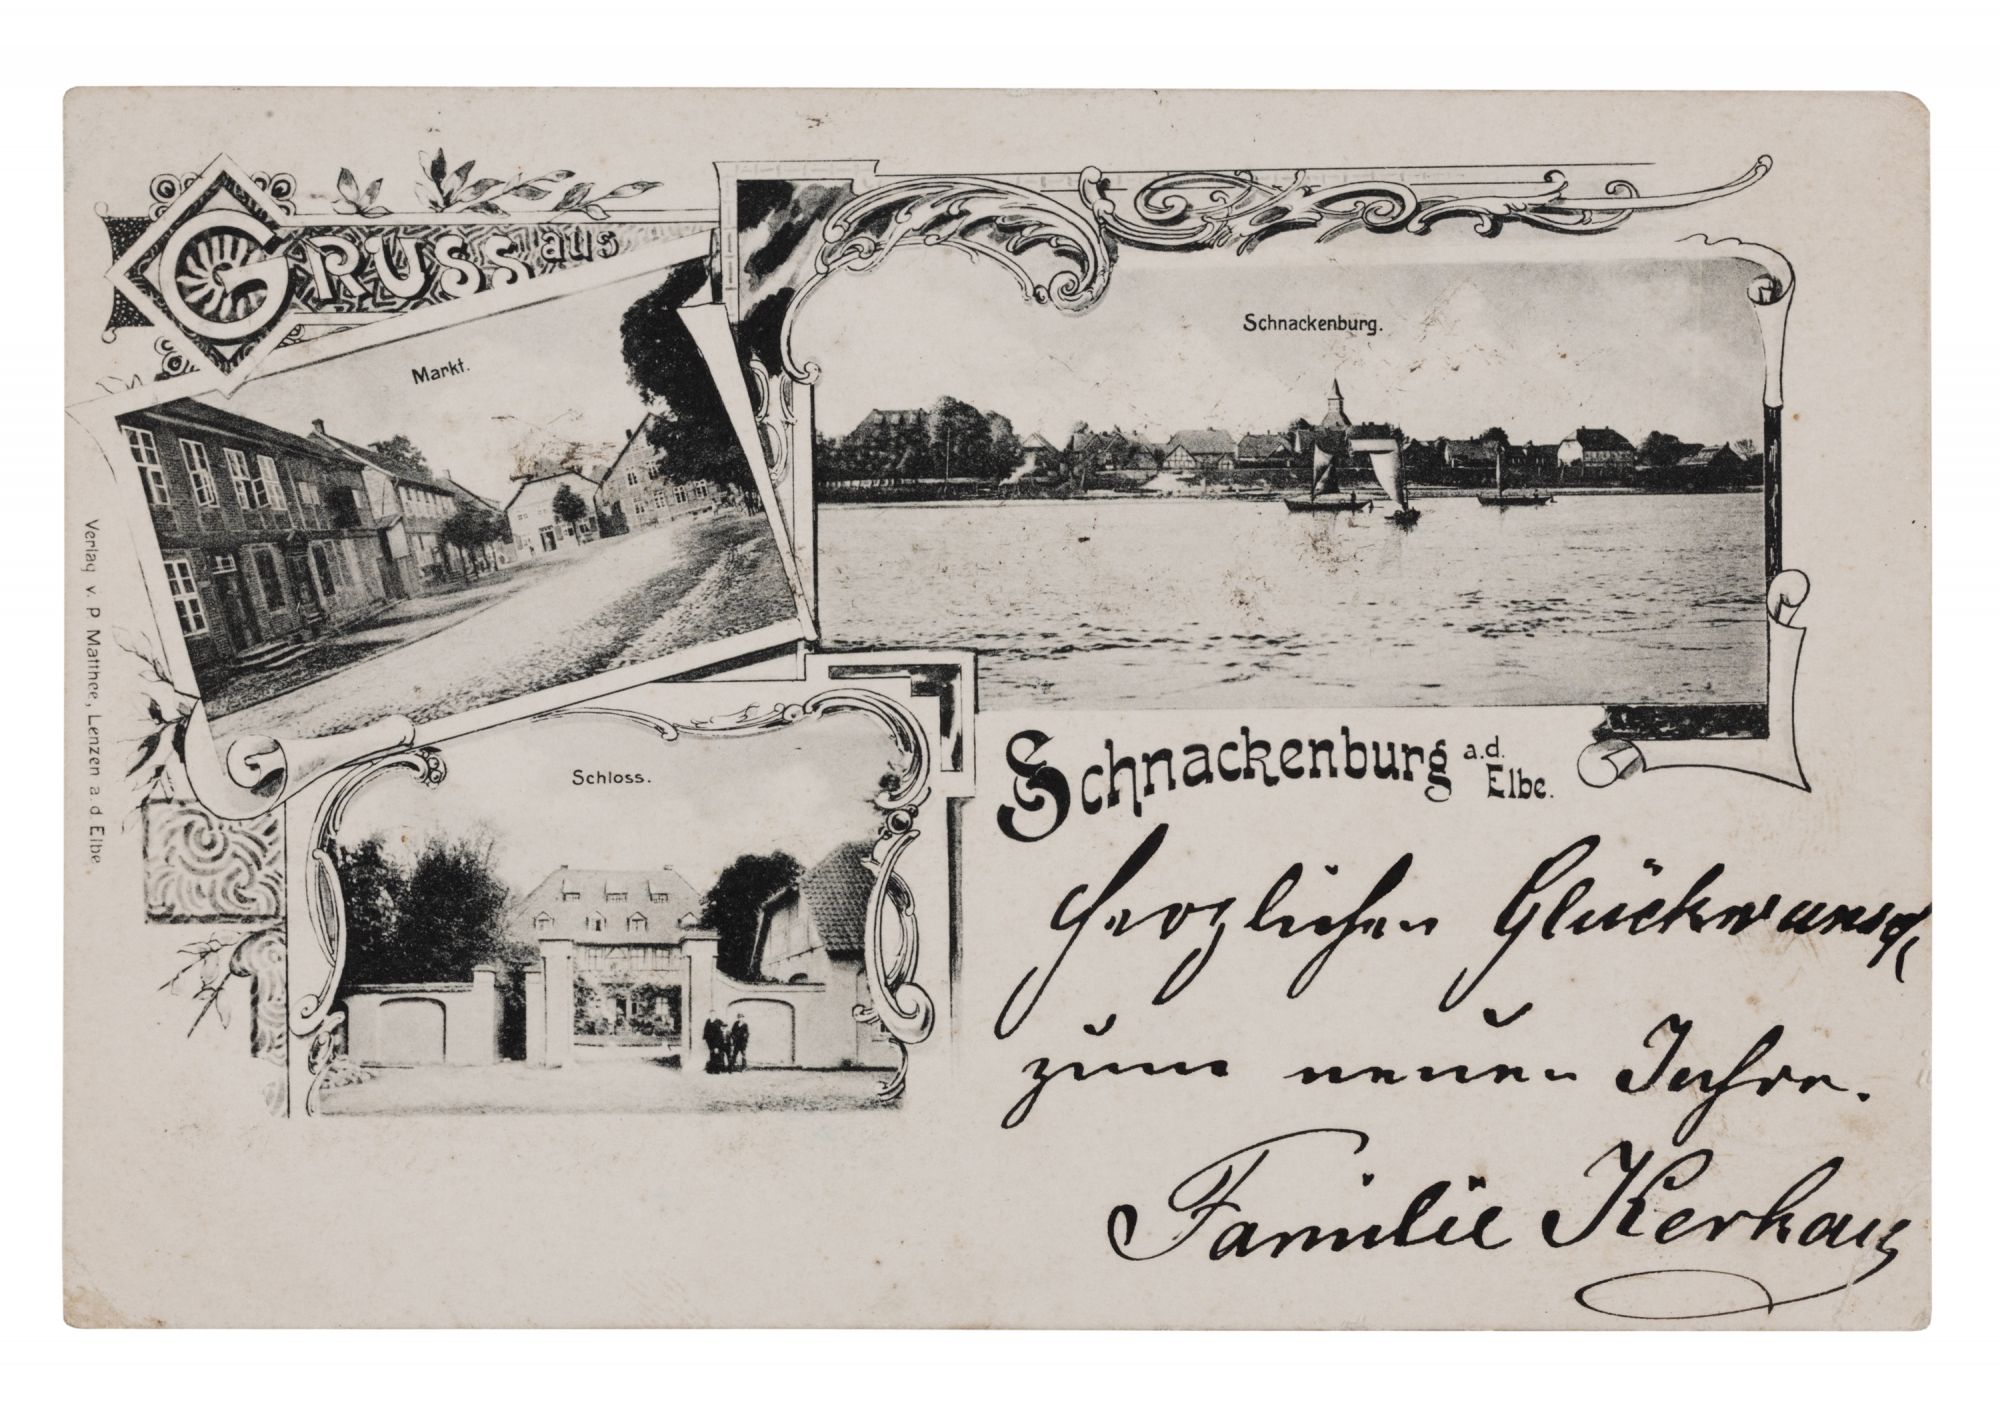 GRUSS aus
Markt.
Schnackenburg.
Schloss.
Schnackenburg a.d. Elbe.
Herzlichen Glückwunsch
zum neuen Jahre.
Familie Kerkau
Verlag v. P. Matthee, Lenzen a d Elbe